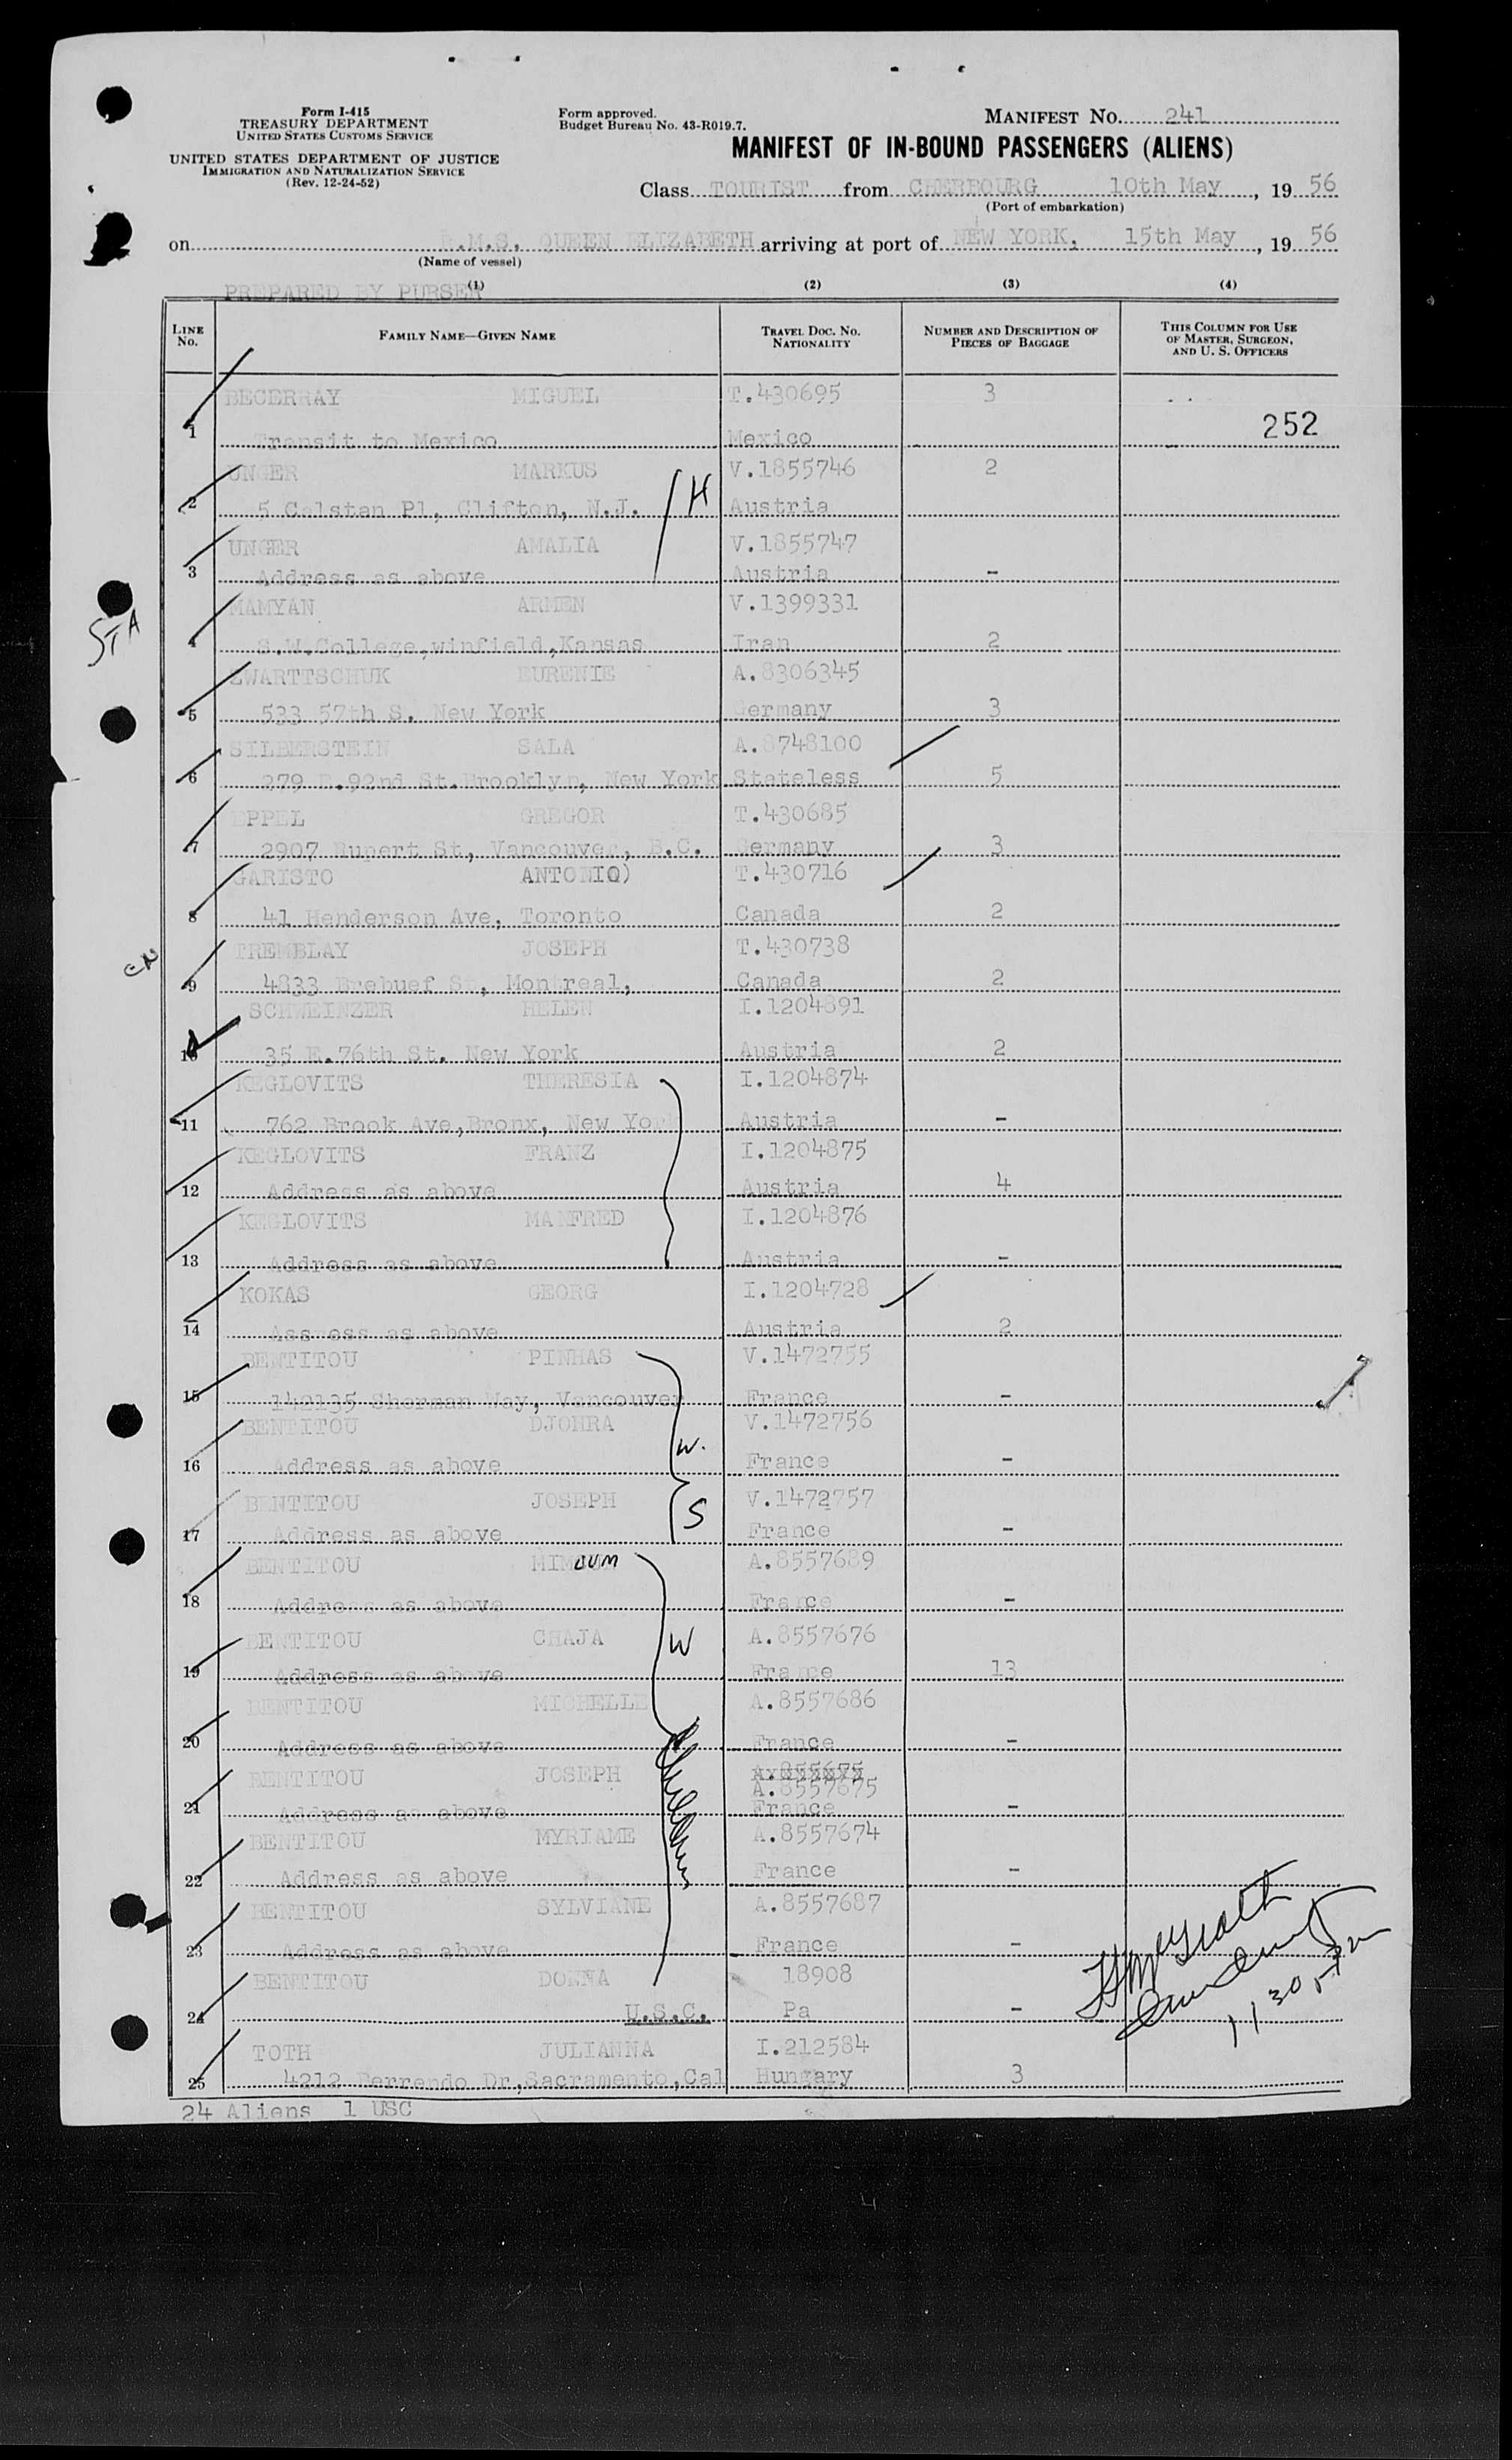 Form I-415
TREASURY DEPARTMENT
UNITED STATES CUSTOMS SERVICE
UNITED STATES DEPARTMENT OF JUSTICE
IMMIGRATION AND NATURALIZATION SERVICE
(Rev. 12-24-52)
Form approved.
Budget Bureau No. 43-R019.7.
MANIFEST No. 241
MANIFEST OF IN-BOUND PASSENGERS (ALIENS)
Class TOURIST from CHERBOURG 10th May, 19 56
(Port of embarkation)
on R.M.S. QUEEN ELIZABETH arriving at port of NEW YORK, 15th May, 19 56
(Name of vessel)
PREPARED BY PURSER
(1) (2) (3) (4)
LINE No. FAMILY NAME—GIVEN NAME TRAVEL DOC. No. NATIONALITY NUMBER AND DESCRIPTION OF PIECES OF BAGGAGE THIS COLUMN FOR USE OF MASTER, SURGEON, AND U. S. OFFICERS
BECERRAY MIGUEL T.430695 3
252
1 Transit to Mexico Mexico
UNGER MARKUS V.1855746 2
2 5 Calstan Pl, Clifton, N.J. H Austria
UNGER AMALIA V.1855747
3 Address as above Austria -
MAMYAN ARMEN V.1399331
STA
4 S.W.College,winfield,Kansas Iran 2
ZWARTTSCHUK EURENIE A.8306345
5 533 57th S. New York Germany 3
SILBERSTEIN SALA A.8748100
6 279 E.92nd St.Brooklyn, New York Stateless 5
EPPEL GREGOR T.430685
7 2907 Rupert St, Vancouver, B.C. Germany 3
GARISTO ANTONIO) T.430716
8 41 Henderson Ave, Toronto Canada 2
TREMBLAY JOSEPH T.430738
CN
9 4833 Brebuef St, Montreal, Canada 2
SCHWEINZER HELEN I.1204891
10 35 E.76th St. New York Austria 2
KEGLOVITS THERESIA I.1204874
11 762 Brook Ave,Bronx, New Yor Austria -
KEGLOVITS FRANZ I.1204875
12 Address as above Austria 4
KEGLOVITS MANFRED I.1204876
13 Address as above Austria -
KOKAS GEORG I.1204728
14 Assress as above Austria 2
BENTITOU PINHAS V.1472755
15 142135 Sherman Way, Vancouver France -
BENTITOU DJOHRA V.1472756
W.
16 Address as above France -
BENTITOU JOSEPH V.1472757
S
17 Address as above France -
BENTITOU MIMOUM A.8557689
18 Address as above France -
BENTITOU CHAJA A.8557676
W
19 Address as above France 13
BENTITOU MICHELLE A.8557686
20 Address as above France -
Children
BENTITOU JOSEPH A.855675
A.8557675
21 Address as above France -
BENTITOU MYRIAME A.8557674
22 Address as above France -
BENTITOU SYLVIANE A.8557687
23 Address as above France -
BENTITOU DONNA 18908
24 U.S.C. Pa -
1130
TOTH JULIANNA I.212584
25 4212 Ferrendo Dr,Sacramento,Cal Hungary 3
24 Aliens 1 USC